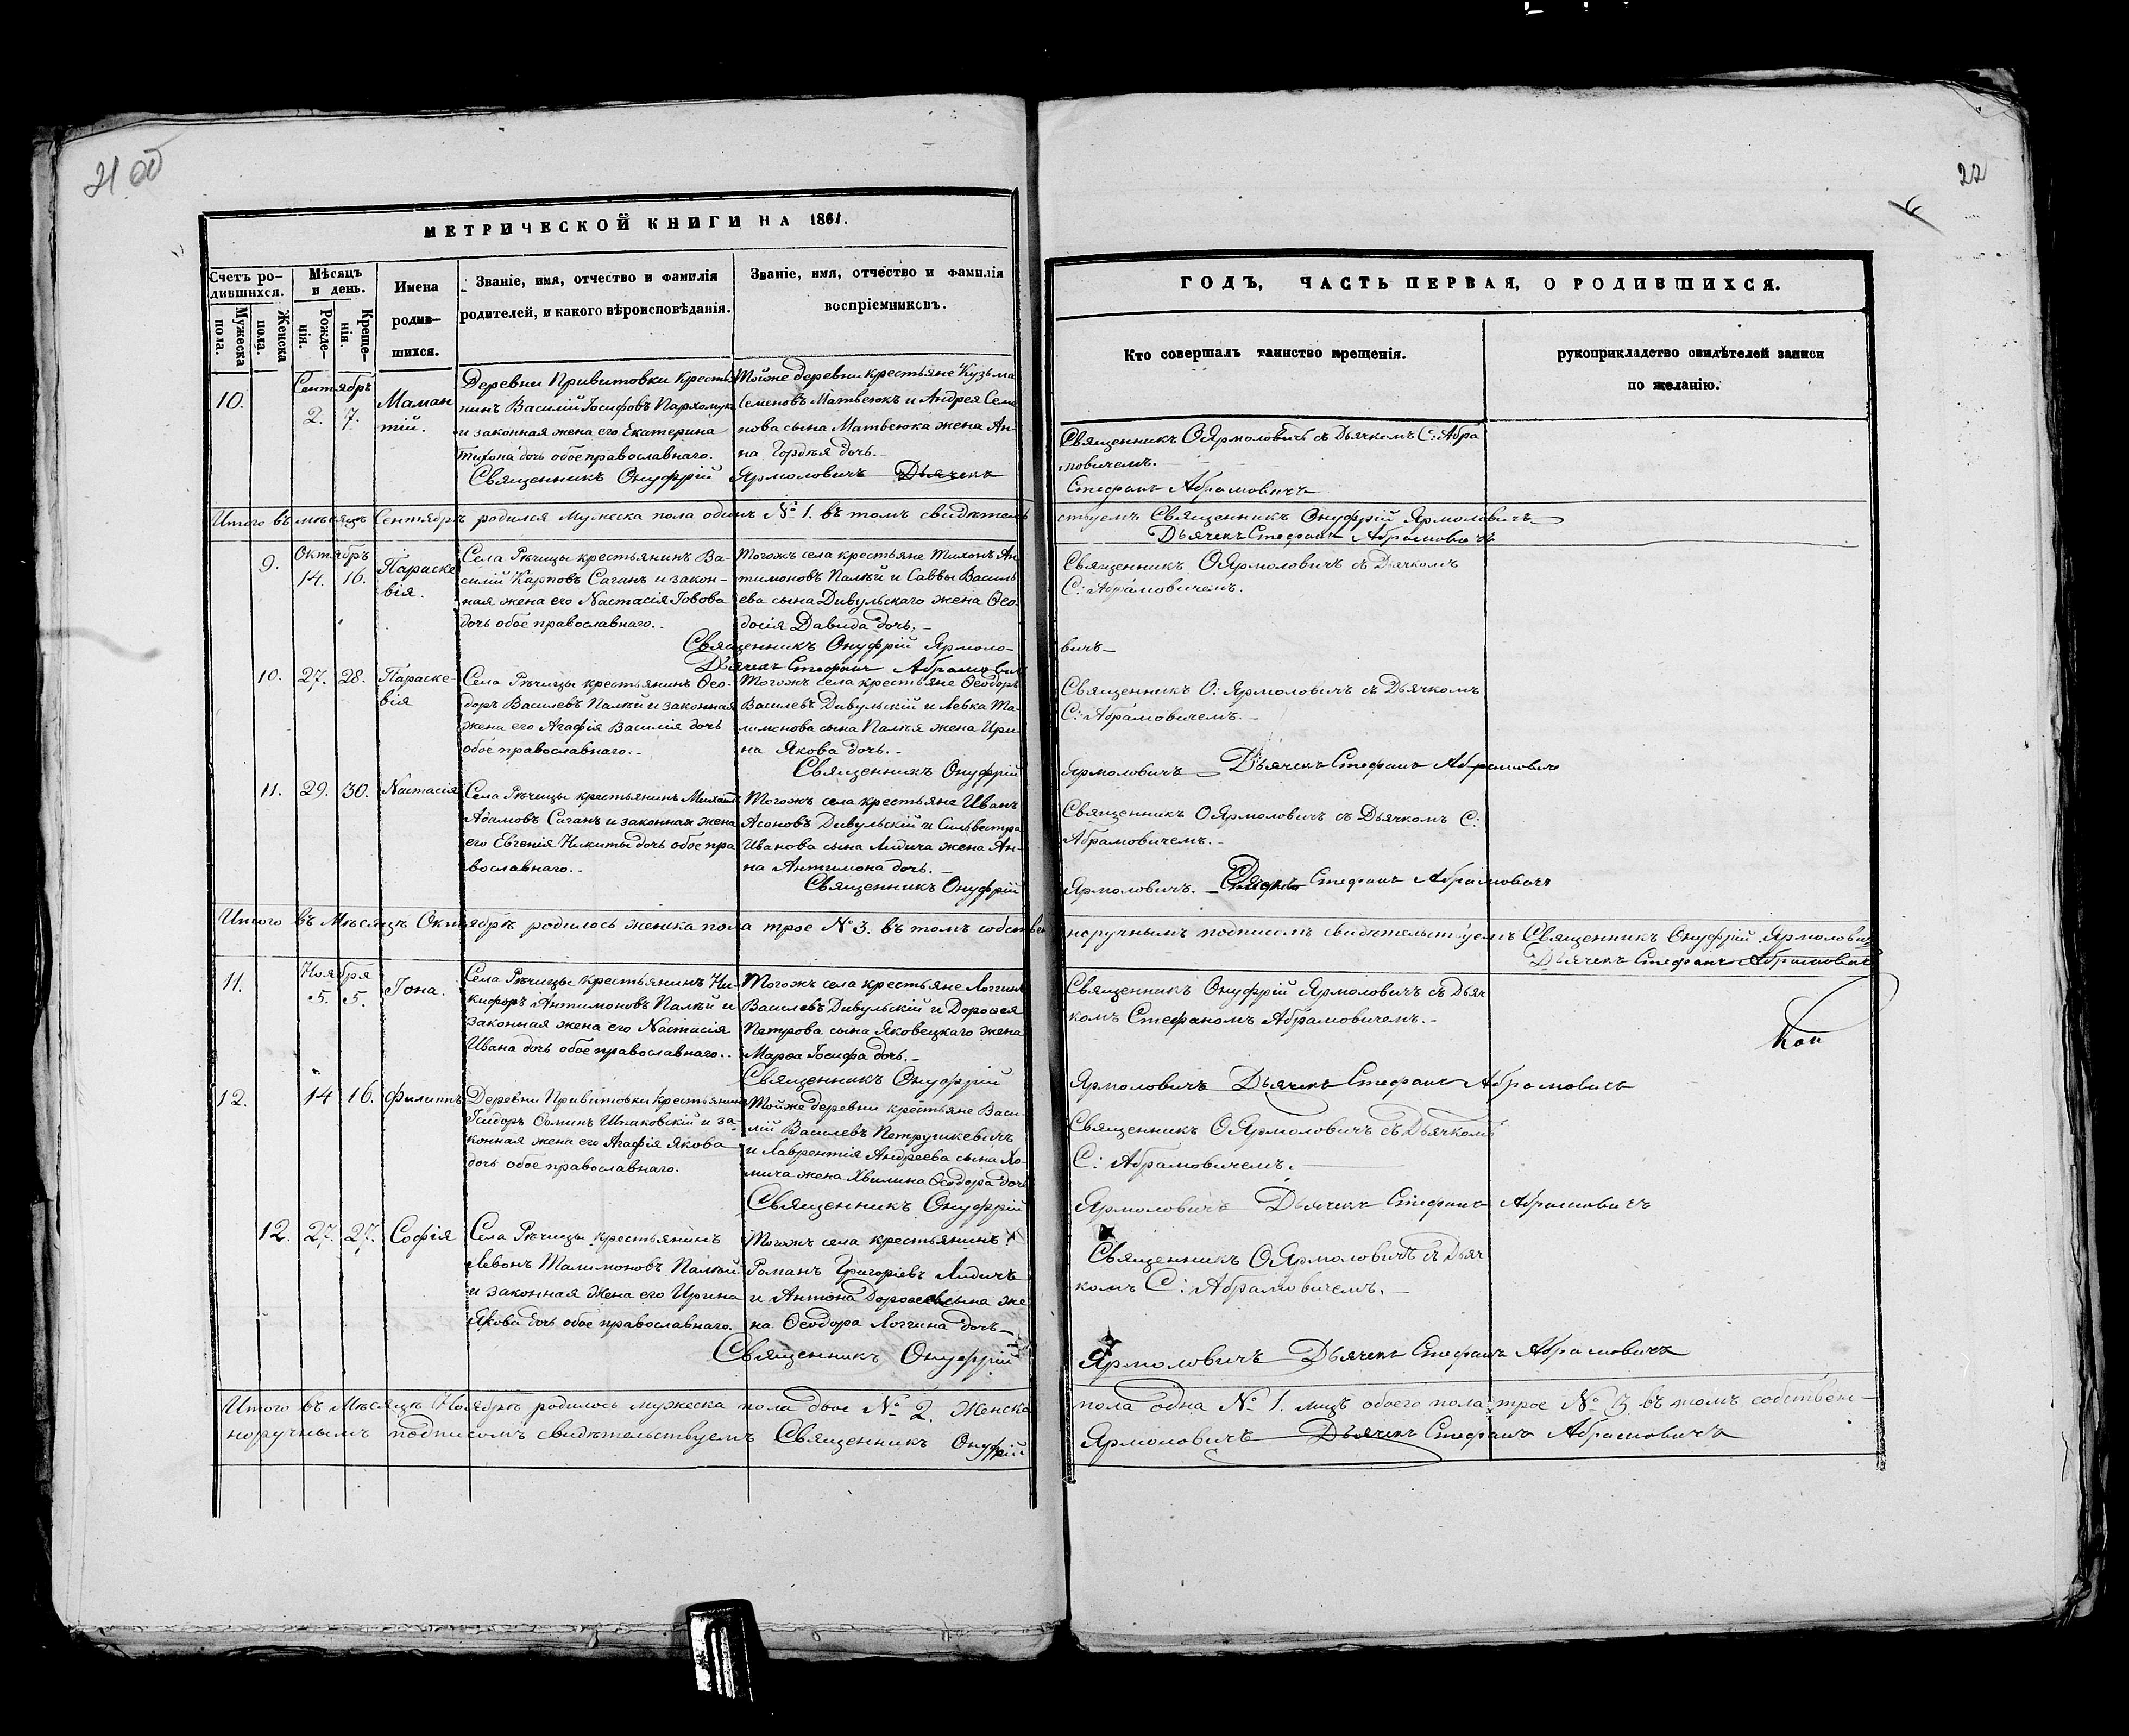 21 об
22
МЕТРИЧЕСКОЙ КНИГИ НА 1861.
ГОДЪ, ЧАСТЬ ПЕРВАЯ, О РОДИВШИХСЯ.
Счетъ ро-
дившихся.
Мужеска
пола.
Женска
пола.
Мѣсяцъ
и день.
Рожде-
нія.
Креще-
нія.
Имена
родив-
шихся.
Званіе, имя, отчество и фамилія
родителей, и какого вѣроисповѣданія.
Званіе, имя, отчество и фамилія
воспріемниковъ.
Кто совершалъ таинство крещенія.
рукоприкладство свидѣтелей записи
по желанію.
10.
Сентябръ
2. 7.
Маман
тій.
Деревни Привитовки крестья
нинъ Василій Іосифовъ Пархомукъ
и законная жена его Екатерина
Тихона дочь обое православнаго.
Тойже деревни крестьяне Кузьма
Семеновъ Матвеюкъ и Андрея Семе
нова сына Матвеюка жена Ан-
на Гордѣя дочь.-
Священникъ ОЯрмоловичъ съ Дьячкомъ С: Абра
мовичемъ.
Священникъ Онуфрій Ярмоловичъ Дьячекъ
Стефанъ Абрамовичъ
Итого въ мѣсяцѣ Сентябрѣ родился Мужеска пола одинъ № 1. въ томъ свидѣтель
ствуемъ Священникъ Онуфрій Ярмоловичъ
Дьячекъ Стефанъ Абрамовичъ
9.
Октябръ
14. 16.
Параске
вія.
Села Рѣчицы крестьянинъ Ва-
силій Карповъ Саганъ и закон-
ная жена его Настасія Іовова
дочь обое православнаго..
Тогожъ села крестьяне Тихонъ Ан
тимоновъ Палѣй и Саввы Василь
ева сына Дивульскаго жена Ѳео-
досія Давида дочь.-
Священникъ ОЯрмоловичъ съ Дьячкомъ
С: Абрамовичемъ.
Священникъ Онуфрій Ярмоло-
вичъ
Дьячекъ Стефанъ Абрамовичъ
10. 27. 28.
Параске-
вія
Села Рѣчицы крестьянинъ Ѳео-
доръ Василевъ Палѣй и законная
жена его Агафія Василія дочь
обое православнаго.-
Тогожъ села крестьяне Ѳеодоръ
Василевъ Дивульскій и Левка Та-
лимонова сына Палѣя жена Ири
на Якова дочь.-
Священникъ О: Ярмоловичъ съ Дьячкомъ
С: Абрамовичемъ.-
Священникъ Онуфрій
Ярмоловичъ Дьячекъ Стефанъ Абрамовичъ
11. 29. 30. Настасія
Села Рѣчицы крестьянинъ Михаилъ
Адамовъ Саганъ и законная жена
его Евгенія Никиты дочь обое пра
вославнаго.-
Тогожъ села крестьяне Иванъ
Асоновъ Дивульскій и Сильвестра
Иванова сына Лидича жена Ан-
на Антимона дочь.-
Священникъ ОЯрмоловичъ съ Дьячкомъ С:
Абрамовичемъ.-
Священникъ Онуфрій
Ярмоловичъ. Стефанъ Абрамовичъ
Итого въ Мѣсяцѣ Октябрѣ родилось женска пола трое № 3. въ томъ собствен
норучнымъ подписомъ свидѣтельствуемъ Священникъ Онуфрій Ярмоловичъ
Дьячекъ Стефанъ Абрамовичъ
11.
Ноября
5. 5.
Іона.
Села Рѣчицы крестьянинъ Ни-
кифоръ Антимоновъ Палѣй и
законная жена его Настасія
Ивана дочь обое православнаго..
Тогожъ села крестьяне Логгинъ
Василевъ Дивульскій и Дороѳея
Петрова сына Яковецкаго жена
Марѳа Іосифа дочь.-
Священникъ Онуфрій Ярмоловичъ съ Дьяч
комъ Стефаномъ Абрамовичемъ.-
Священникъ Онуфрій
Ярмоловичъ Дьячекъ Стефанъ Абрамовичъ
12. 14 16. Филиппъ
Деревни Привитовки крестьянинъ
Исидоръ Ѳоминъ Шпаковскій и за-
конная жена его Агафія Якова
дочь обое православнаго.
Тойже деревни крестьяне Васи-
лій Василевъ Петрушкевичъ
и Лаврентія Андреева сына Хо-
мича жена Хвилина Ѳеодора дочь
Священникъ ОЯрмоловичъ съ Дьячкомъ
С: Абрамовичемъ.
Священникъ Онуфрій
Ярмоловичъ Дьячекъ Стефанъ Абрамовичъ
12. 27. 27. Софія
Села Рѣчицы крестьянинъ
Левонъ Талимоновъ Палѣй
и законная жена его Ирина
Якова дочь обое православнаго.
Тогожъ села крестьянинъ
Романъ Григоріевъ Лидичъ
и Антона Дороѳеевасына же
на Ѳеодора Логгина дочь
Священникъ ОЯрмоловичъ съ Дьяч
комъ С: Абрамовичемъ.-
Священникъ Онуфрій
Ярмоловичъ Дьячекъ Стефанъ Абрамовичъ
Итого въ Мѣсяцѣ Ноябрѣ родилось мужеска пола двое № 2. Женска
пола одна № 1. лицъ обоего пола трое № 3. въ томъ собствен-
норучнымъ подписомъ свидѣтельствуемъ Священникъ Онуфрій
Ярмоловичъ Дьячекъ Стефанъ Абрамовичъ